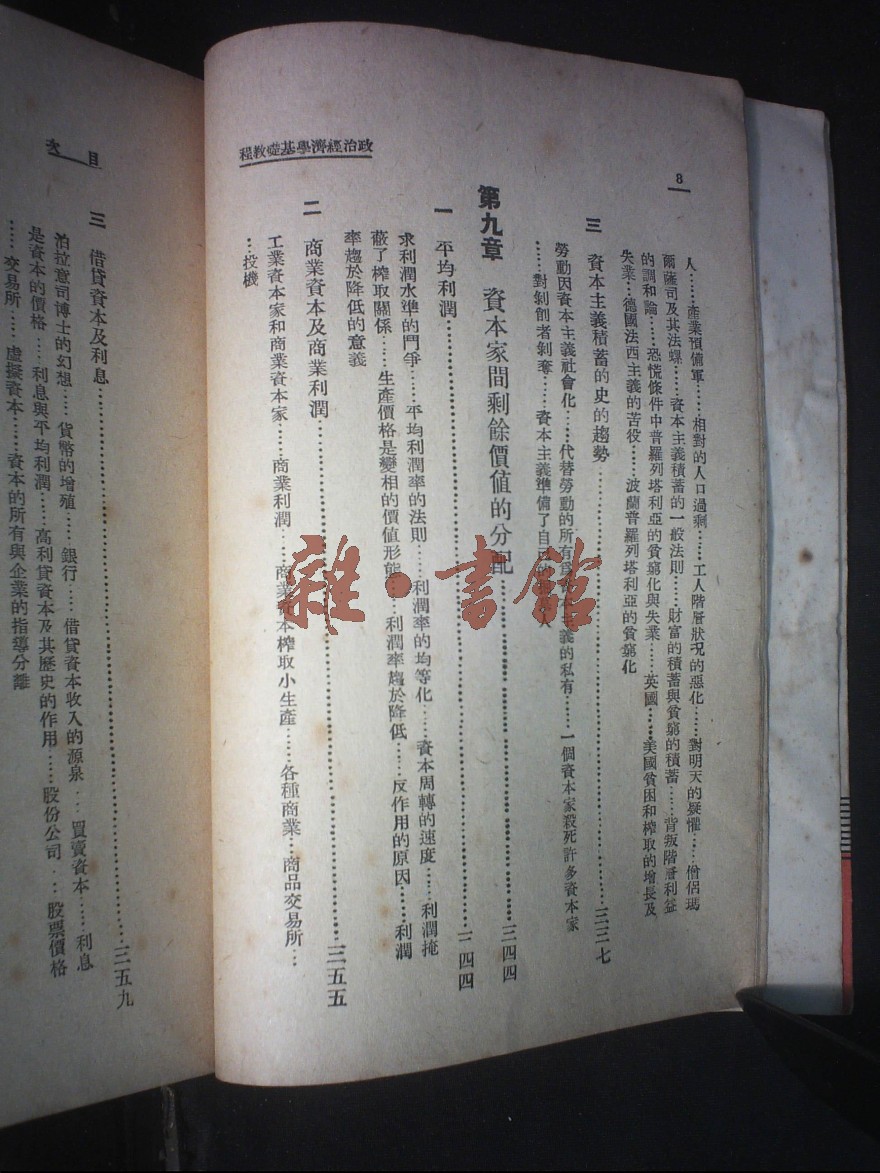 8
人……產業預備軍……相對的人口過剩……工人階層狀况的惡化……對明天的疑懼……僧侶瑪
爾薩司及其法螺……資本主義積蓄的一般法則……財富的積蓄與貧窮的積蓄……背叛階層利益
的調和論……恐慌條件中普羅列塔利亞的貧窮化與失業……英國……美國貧困和榨取的增長及
失業……德國法西主義的苦役……波蘭普羅列塔利亞的貧窮化
三 資本主義積蓄的史的趨勢……三三七
勞動因資本主義社會化……代替勞動的所有爲資本主義的私有……一個資本家殺死許多資本家
……對剝削者剝奪……資本主義準備了自己的人
第九章 資本家間剩餘價値的分配……三四四
一 平均利潤……四四
求利潤水準的鬥爭……平均利潤率的法則……利潤率的均等化……資本周轉的速度……利潤掩
蔽了榨取關係……生產價格是變相的價値形態……利潤率趨於降低……反作用的原因……利潤
率趨於降低的意義
二 商業資本及商業利潤……三五五
工業資本家和商業資本家……商業利潤……商業資本榨取小生產……各種商業…商品交易所…
…投機
政治經濟學基礎教程
目次
三 借貸資本及利息……三五九
泊拉意司博士的幻想……貨幣的增殖……銀行……借貸資本收入的源泉……買賣資本……利息
是資本的價格……利息與平均利潤……高利貸資本及其歷史的作用……股份公司……股票價格
……交易所……虛擬資本……資本的所有與企業的指導分離
雜·書館